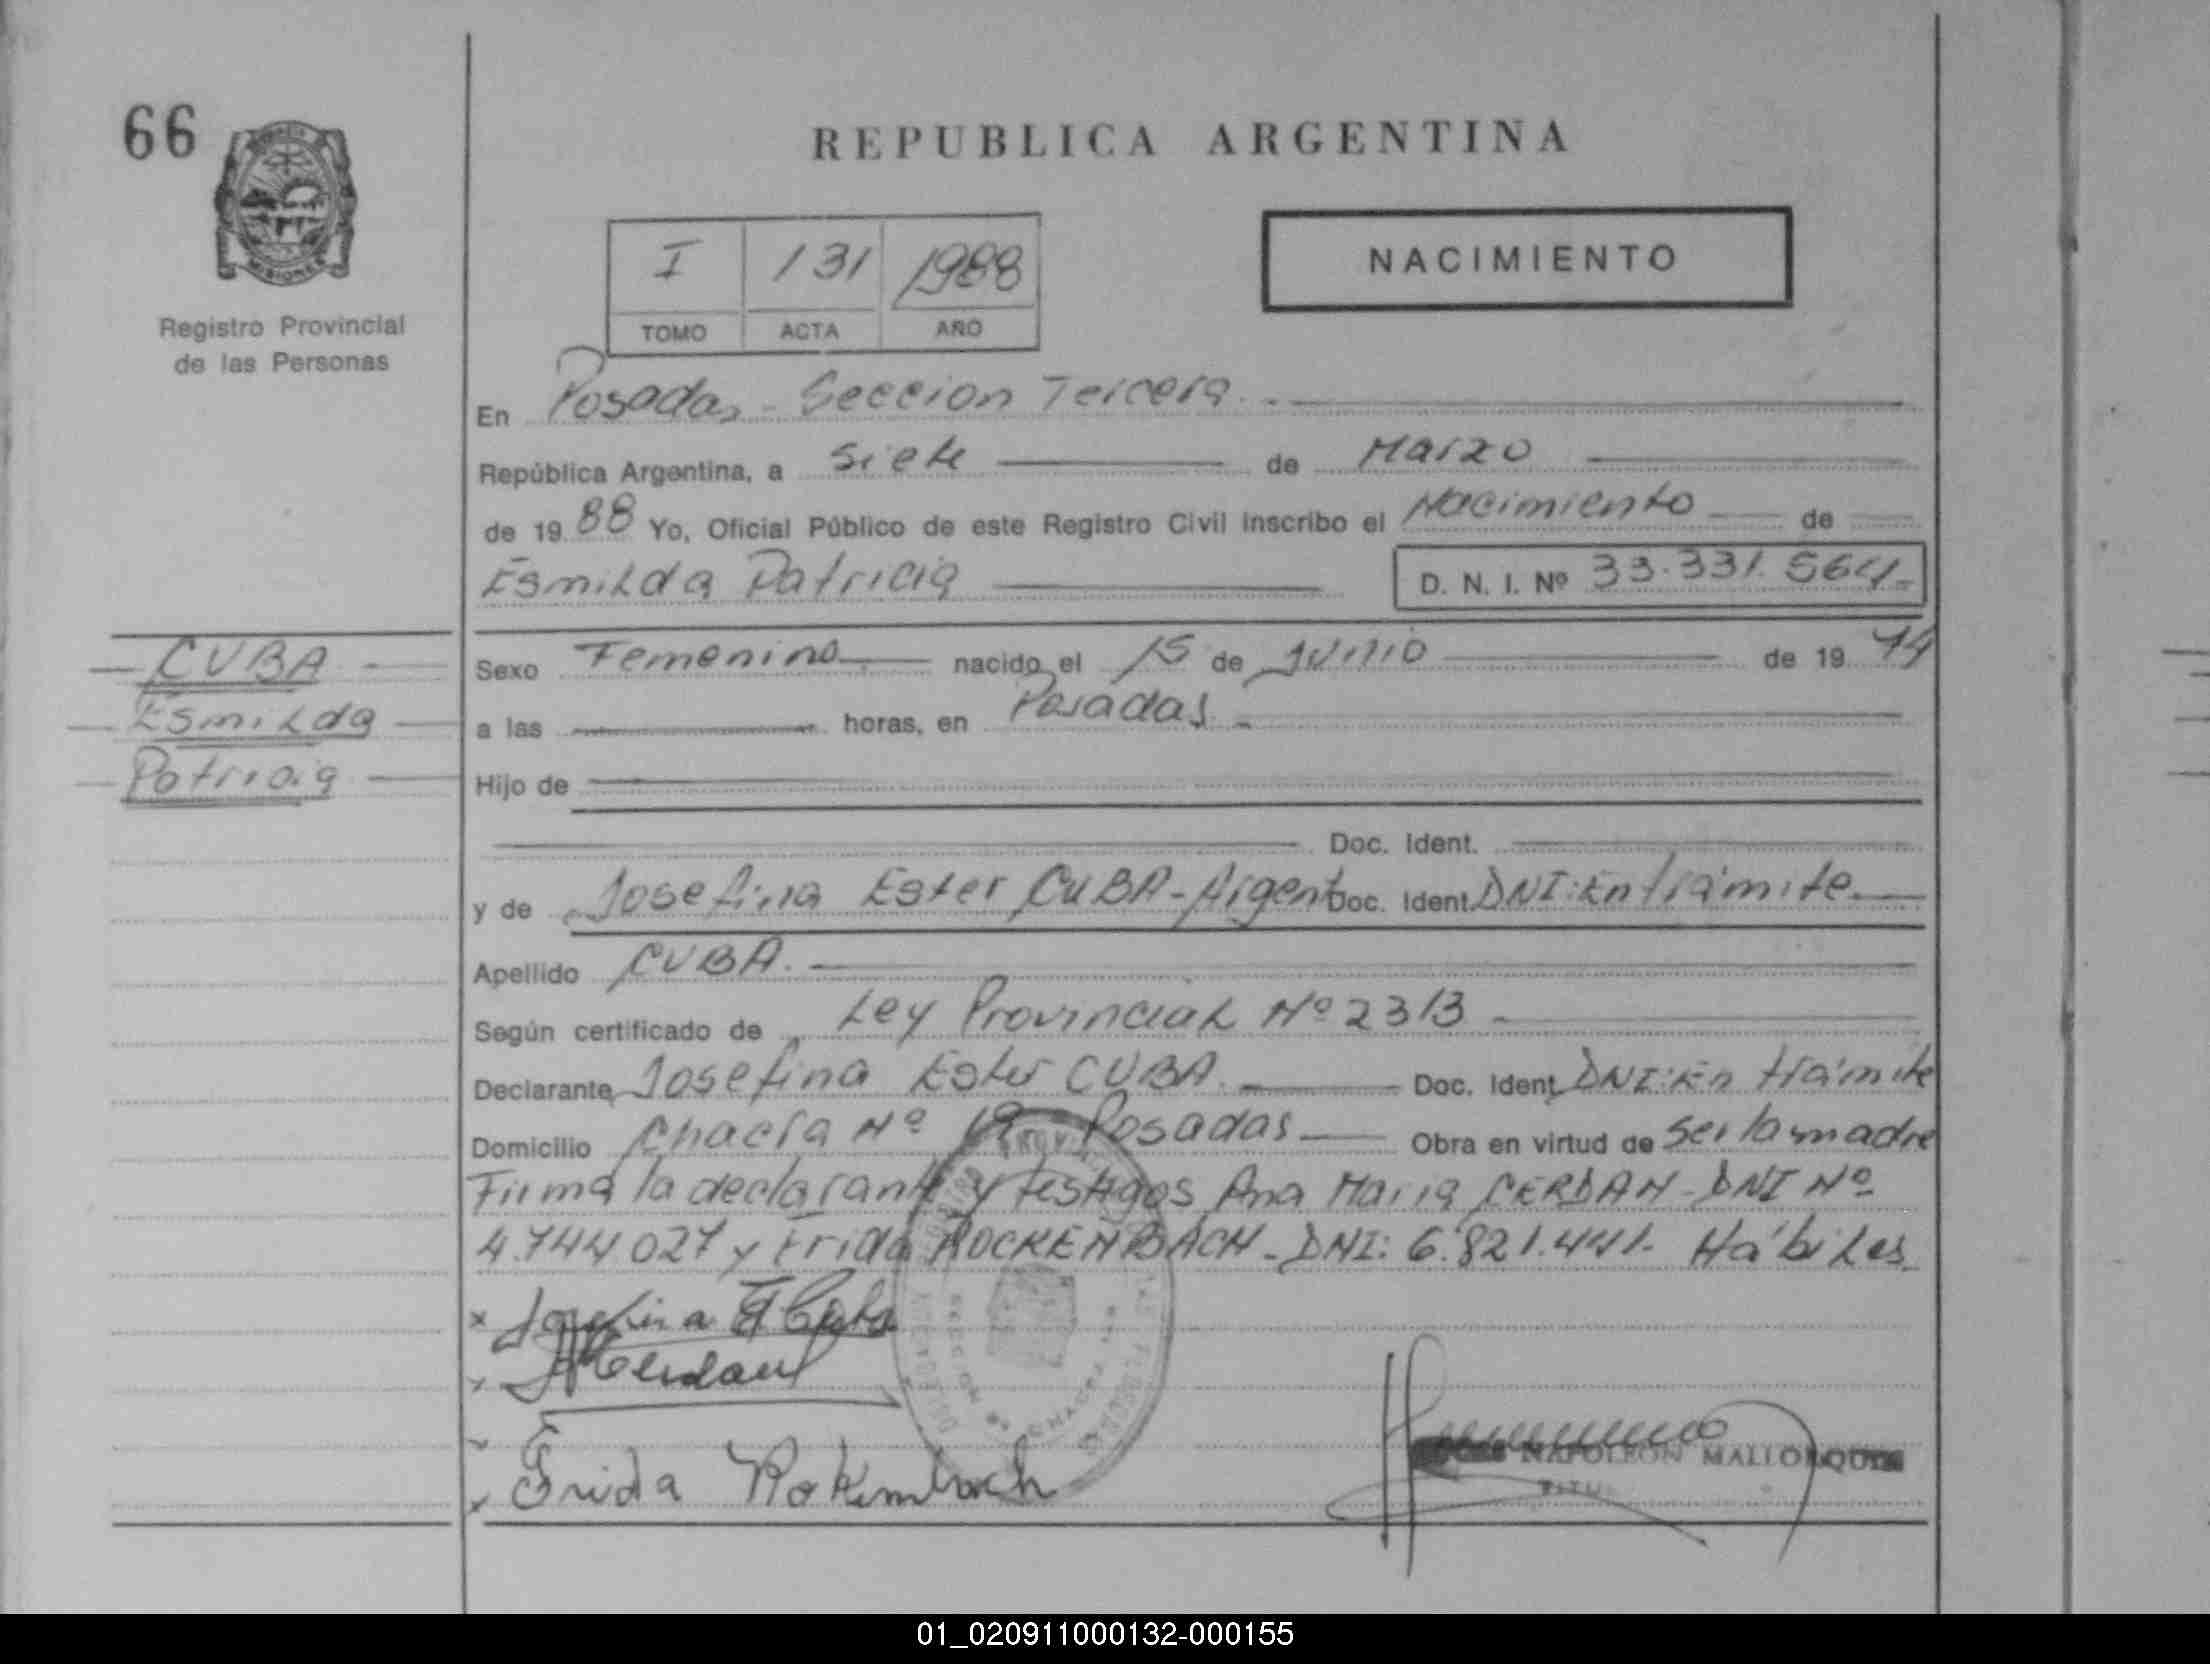 66
REPUBLICA ARGENTINA
MISIONES
I 131 1988
TOMO ACTA AÑO
NACIMIENTO
Registro Provincial
de las Personas
En Posadas - Seccion Tercera
República Argentina, a siete de Marzo
de 19 88 Yo, Oficial Público de este Registro Civil inscribo el Nacimiento de
Esmilda Patricia D. N. I. Nº 33.331.564
CUBA
Esmilda
Patricia
Sexo Femenino nacido el 15 de Junio de 19 74
a las horas, en Posadas
Hijo de
Doc. Ident.
y de Josefina Ester CUBA - Argent Doc. Ident. DNI: En trámite
Apellido CUBA.
Según certificado de Ley Provincial Nº 2313
Declarante Josefina Ester CUBA Doc. Ident. DNI: En trámite
Domicilio Chacra Nº 19 Posadas Obra en virtud de ser la madre
Firma la declarante y testigos Ana Maria CERDAN - DNI Nº
4.744.027 y Frida ROCKENBACH - DNI: 6.821.441. Hábiles
x Josefina E Cuba
x Cerdan
x Frida Rokembach
NAPOLEON MALLORQUIN
01_020911000132-000155